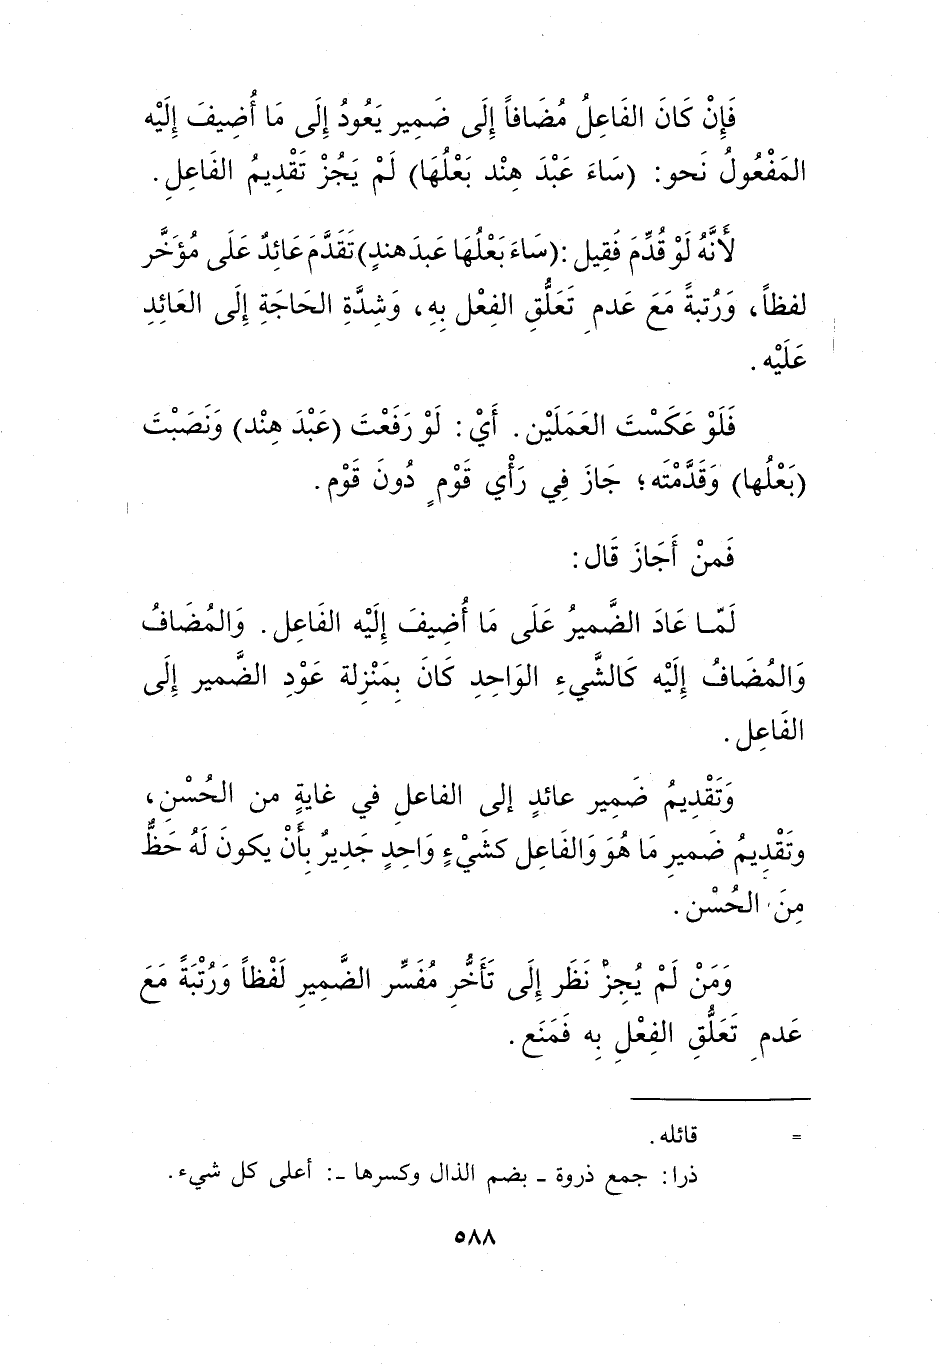 فَإِنْ كَانَ الفَاعِلُ مُضَافاً إِلَى ضَمِير يَعُودُ إِلَى مَا أُضِيفَ إِلَيْه
المَفْعُولُ نَحو: (سَاءَ عَبْدَ هِنْد بَعْلُهَا) لَمْ يَجُزْ تَقْدِيمُ الفَاعِلِ.
لأَنَّهُ لَوْ قُدِّمَ فَقِيل: (سَاءَ بَعْلُهَا عَبدَ هندٍ) تَقَدَّمَ عَائِدٌ عَلَى مُؤَخَّر
لفظاً، وَرُتبةً مَعَ عَدمِ تَعَلُّقِ الفِعْلِ بِهِ، وَشِدَّةِ الحَاجَةِ إِلَى العَائِدِ
عَلَيْه.
فَلَوْ عَكَسْتَ العَمَلَيْن. أَيْ: لَوْ رَفَعْتَ (عَبْدَ هِنْد) وَنَصَبْتَ
(بَعْلُها) وَقَدَّمْتَه؛ جَازَ فِي رَأْي قَوْمٍ دُونَ قَوْم.
فَمنْ أَجَازَ قَال:
لَمّا عَادَ الضَّمِيرُ عَلَى مَا أُضِيفَ إِلَيْه الفَاعِل. وَالمُضَافُ
وَالمُضَافُ إِلَيْه كَالشَّيءِ الوَاحِدِ كَانَ بِمَنْزِلة عَوْدِ الضَّمير إِلَى
الفَاعِل.
وَتَقْدِيمُ ضَمِير عائدٍ إلى الفاعل في غايةٍ من الحُسْنِ،
وتَقْدِيمُ ضَميرِ مَا هُوَ وَالفَاعِل كشَيْءٍ وَاحِدٍ جَديرٌ بِأَنْ يكونَ لَهُ حَظٌّ
مِنَ الحُسْن.
وَمَنْ لَمْ يُجِزْ نَظَر إِلَى تَأَخُّرِ مُفَسِّر الضَّمِيرِ لَفْظاً وَرُتْبَةً مَعَ
عَدمِ تَعَلُّقِ الفِعْلِ بِه فَمَنَع.
= قائله.
ذرا: جمع ذروة ـ بضم الذال وكسرها ـ: أعلى كل شيء.
٥٨٨